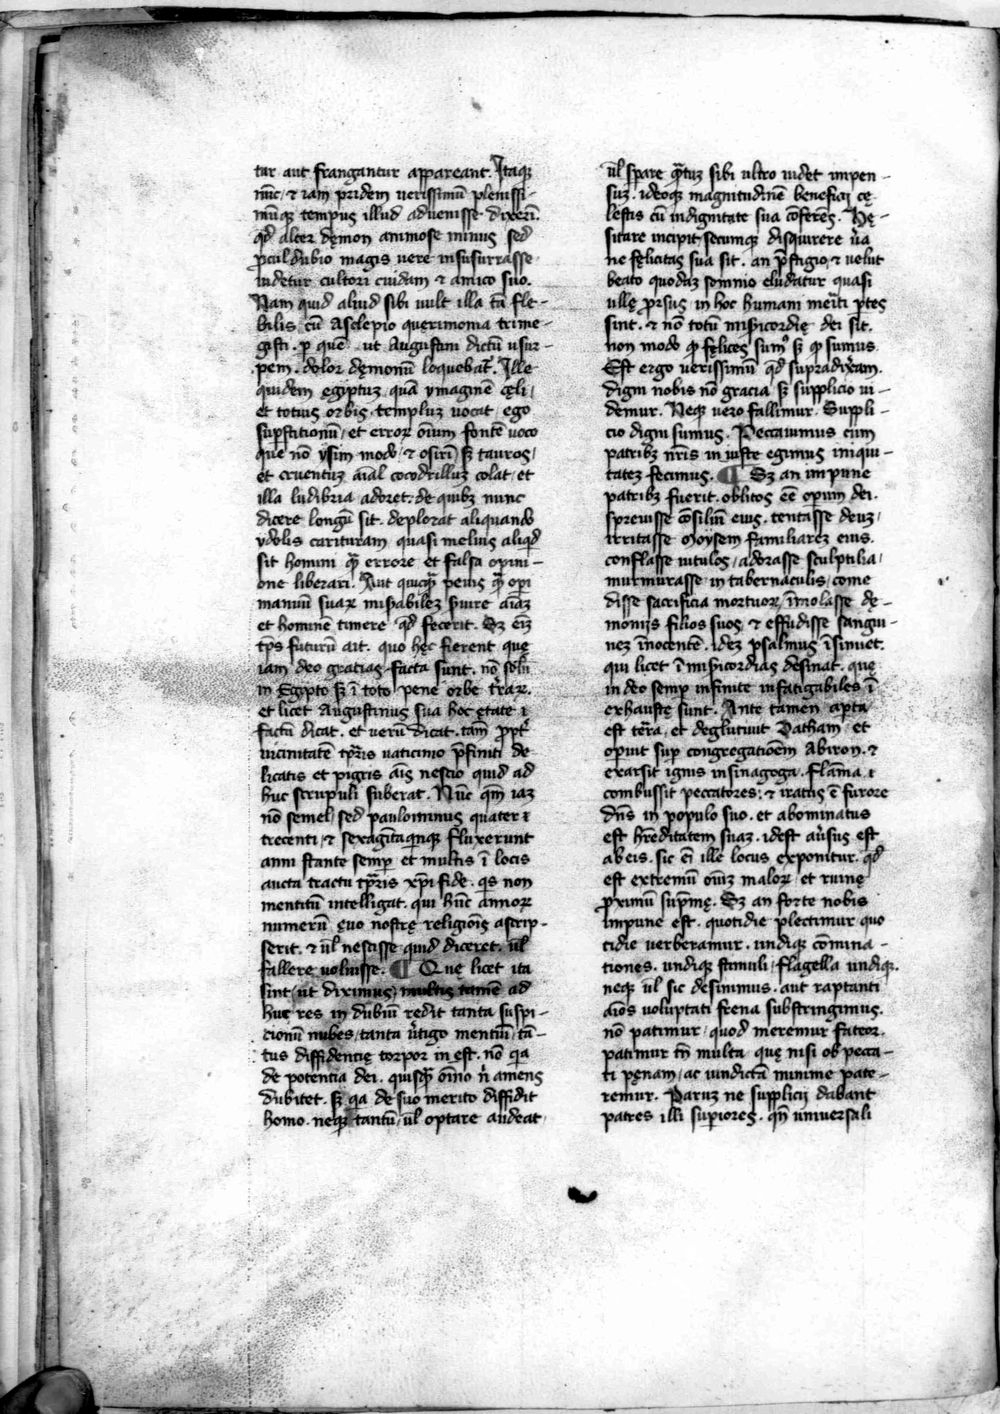 tur aut frangantur appareant. Itaqꝫ
nūc ⁊ iam pridem uerissimū plenissi-
mūqꝫ tempus illud aduenisse dixerī.
qd̄ alter dęmon animose minus sed
ꝓcul dubio magis uere insusurrasse
uidetur cultori cuidam ⁊ amico suo.
Nam quid aliud sibi uult illa tā fle-
bilis cū Asclepio querimonia trime-
gisti. ꝑ quē ut Augustini dictū usur-
pem. dolor dęmonū loquebat̄. Ille
quidem egiptuꝫ quā ymaginē cęli
et totius orbis templuꝫ uocat ego
supstitionū et error oīum fontē uoco
que nō ysim modo ⁊ osirī sꝫ tauros
et cruentuꝫ aīal cocodrilluꝫ colat et
illa ludibria adoret. de quibꝫ nunc
dicere longū sit. deplorat aliquando
ydolis carituram quasi melius aliqd
sit homini qꝫ errore et falsa opini-
one liberari. Aut quicqꝫ peius qꝫ opi
manuū suaꝝ misabileꝫ ẜuire aīaꝫ
et hominē timere qd̄ fecerit. Sꝫ eiꝫ
tp̄s futurū ait. quo hęc fierent quę
iam deo gratias facta sunt. nō solū
in Egypto sꝫ ī toto pene orbe t̄raꝝ.
et licet Augustinus sua hoc ętate ī
factū dicat. et uerū dicat. tam̄ ꝓpt̄
uicinitatē tp̄ris uaticinio p̄finiti de
licatis et pigris aīs nescio quid ad
huc scrupuli suberat. Nūc qm̄ iaꝫ
nō semel sed paulominus quater ⁊
trecenti ⁊ sexagīta quinqꝫ fluxerunt
anni stante semp et multis ī locis
aucta tractu tp̄ris xp̄i fide. qs non
mentitū intelligat. qui hūc annoꝝ
numerū ęuo nostrę religionis ascrip-
serit. ⁊ ūl nescisse quid diceret. ūl
fallere uoluisse. ¶ Que licet ita
sint ut diximus multis tamē ad
huc res in dubiū redit tanta suspi-
cionū nubes tanta ūtigo mentiū tā-
tus diffidentię torpor in est. nō qa
de potentia dei. quisqꝫ oīno n̄ amens
dubitet. sꝫ qa de suo merito diffidit
homo. neqꝫ tantū ūl optare audeat
ūl sperare qtuꝫ sibi ultro uidet impen-
suꝫ. ideoqꝫ magnitudinē beneficij cę
lestis cū indignitate sua cōferēs. Hę-
sitare incipit secumqꝫ disquirere ūa
ne fęlicitas sua sit. an p̄stigio ⁊ uelut
beato quodaꝫ somnio eludatur quasi
ullę prorsus in hoc humani meriti p̄tes
sint. ⁊ nō totū misicordię dei sit.
non modo qꝫ fęlices sum̄ sꝫ qꝫ sumus
Est ergo uerissimū qd̄ supradixeram.
digni nobis nō gracia sꝫ supplicio ui-
demur. Neqꝫ uero fallimur. Suppli-
cio digni sumus. Peccauimus cum
patribꝫ nr̄is iniuste egimus iniqui-
tateꝫ fecimus. ¶ Sꝫ an impune
patribꝫ fuerit. oblitos eē operum dei.
spreuisse cōsiliū eius. tentasse deuꝫ
irritasse Moysem familiareꝫ eius.
conflasse uitulos adorasse sculptilia
murmurasse in tabernaculis come
disse sacrificia mortuoꝝ īmolasse dę-
monijs filios suos ⁊ effudisse sangui-
neꝫ īnocentē. ideꝫ psalmus īsinuet.
qui licet ī misicordias desinat. quę
in deo semp infinite infatigabiles ī
exhaustę sunt. Ante tamen apta
est terra et deglutiuit Dathan et
opuit sup congregatiōem Abiron. ⁊
exarsit ignis in sinagoga. Flāma ī
combussit peccatores: ⁊ iratus ē furore
dn̄s in populo suo. et abominatus
est hr̄editatem suaꝫ. idest aūsus est
ab eis. sic ei ille locus exponitur. qd̄
est extremū oīuꝫ maloꝝ et ruinę
ꝓximum sup̄mę. Sꝫ an forte nobis
impune est. quotidie plectimur quo
tidie uerberamur. undiqꝫ cōmina-
tiones. undiqꝫ stimuli flagella undiqꝫ.
neqꝫ ūl sic desinimus. aut raptanti
aīos uoluptati frena substringimus.
nō patimur quod meremur fateor.
patimur tn̄ multa quę nisi ob pecca-
ti pęnam ac uindictā minime pate-
remur. Paruꝫ ne supplicij dabant
patres illi supiores. qn̄ uniuersali